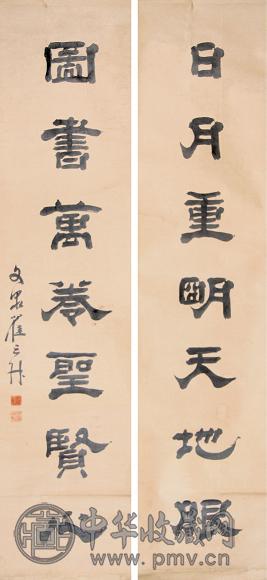 日月重明天地眼
圖書萬卷聖賢心
中华收藏网
www.pmv.cn